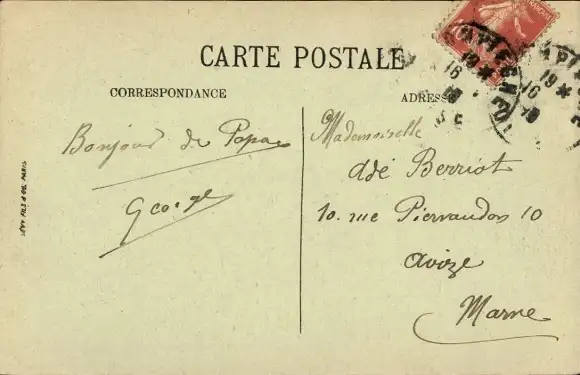 CARTE POSTALE
CORRESPONDANCE
ADRESSE
Bonjour de Papa
George
Mademoiselle
Adé Berriot
10. rue Pierraudon 10
Avize
Marne
LÉVY FILS & CIE PARIS
19 *
16
19 *
16